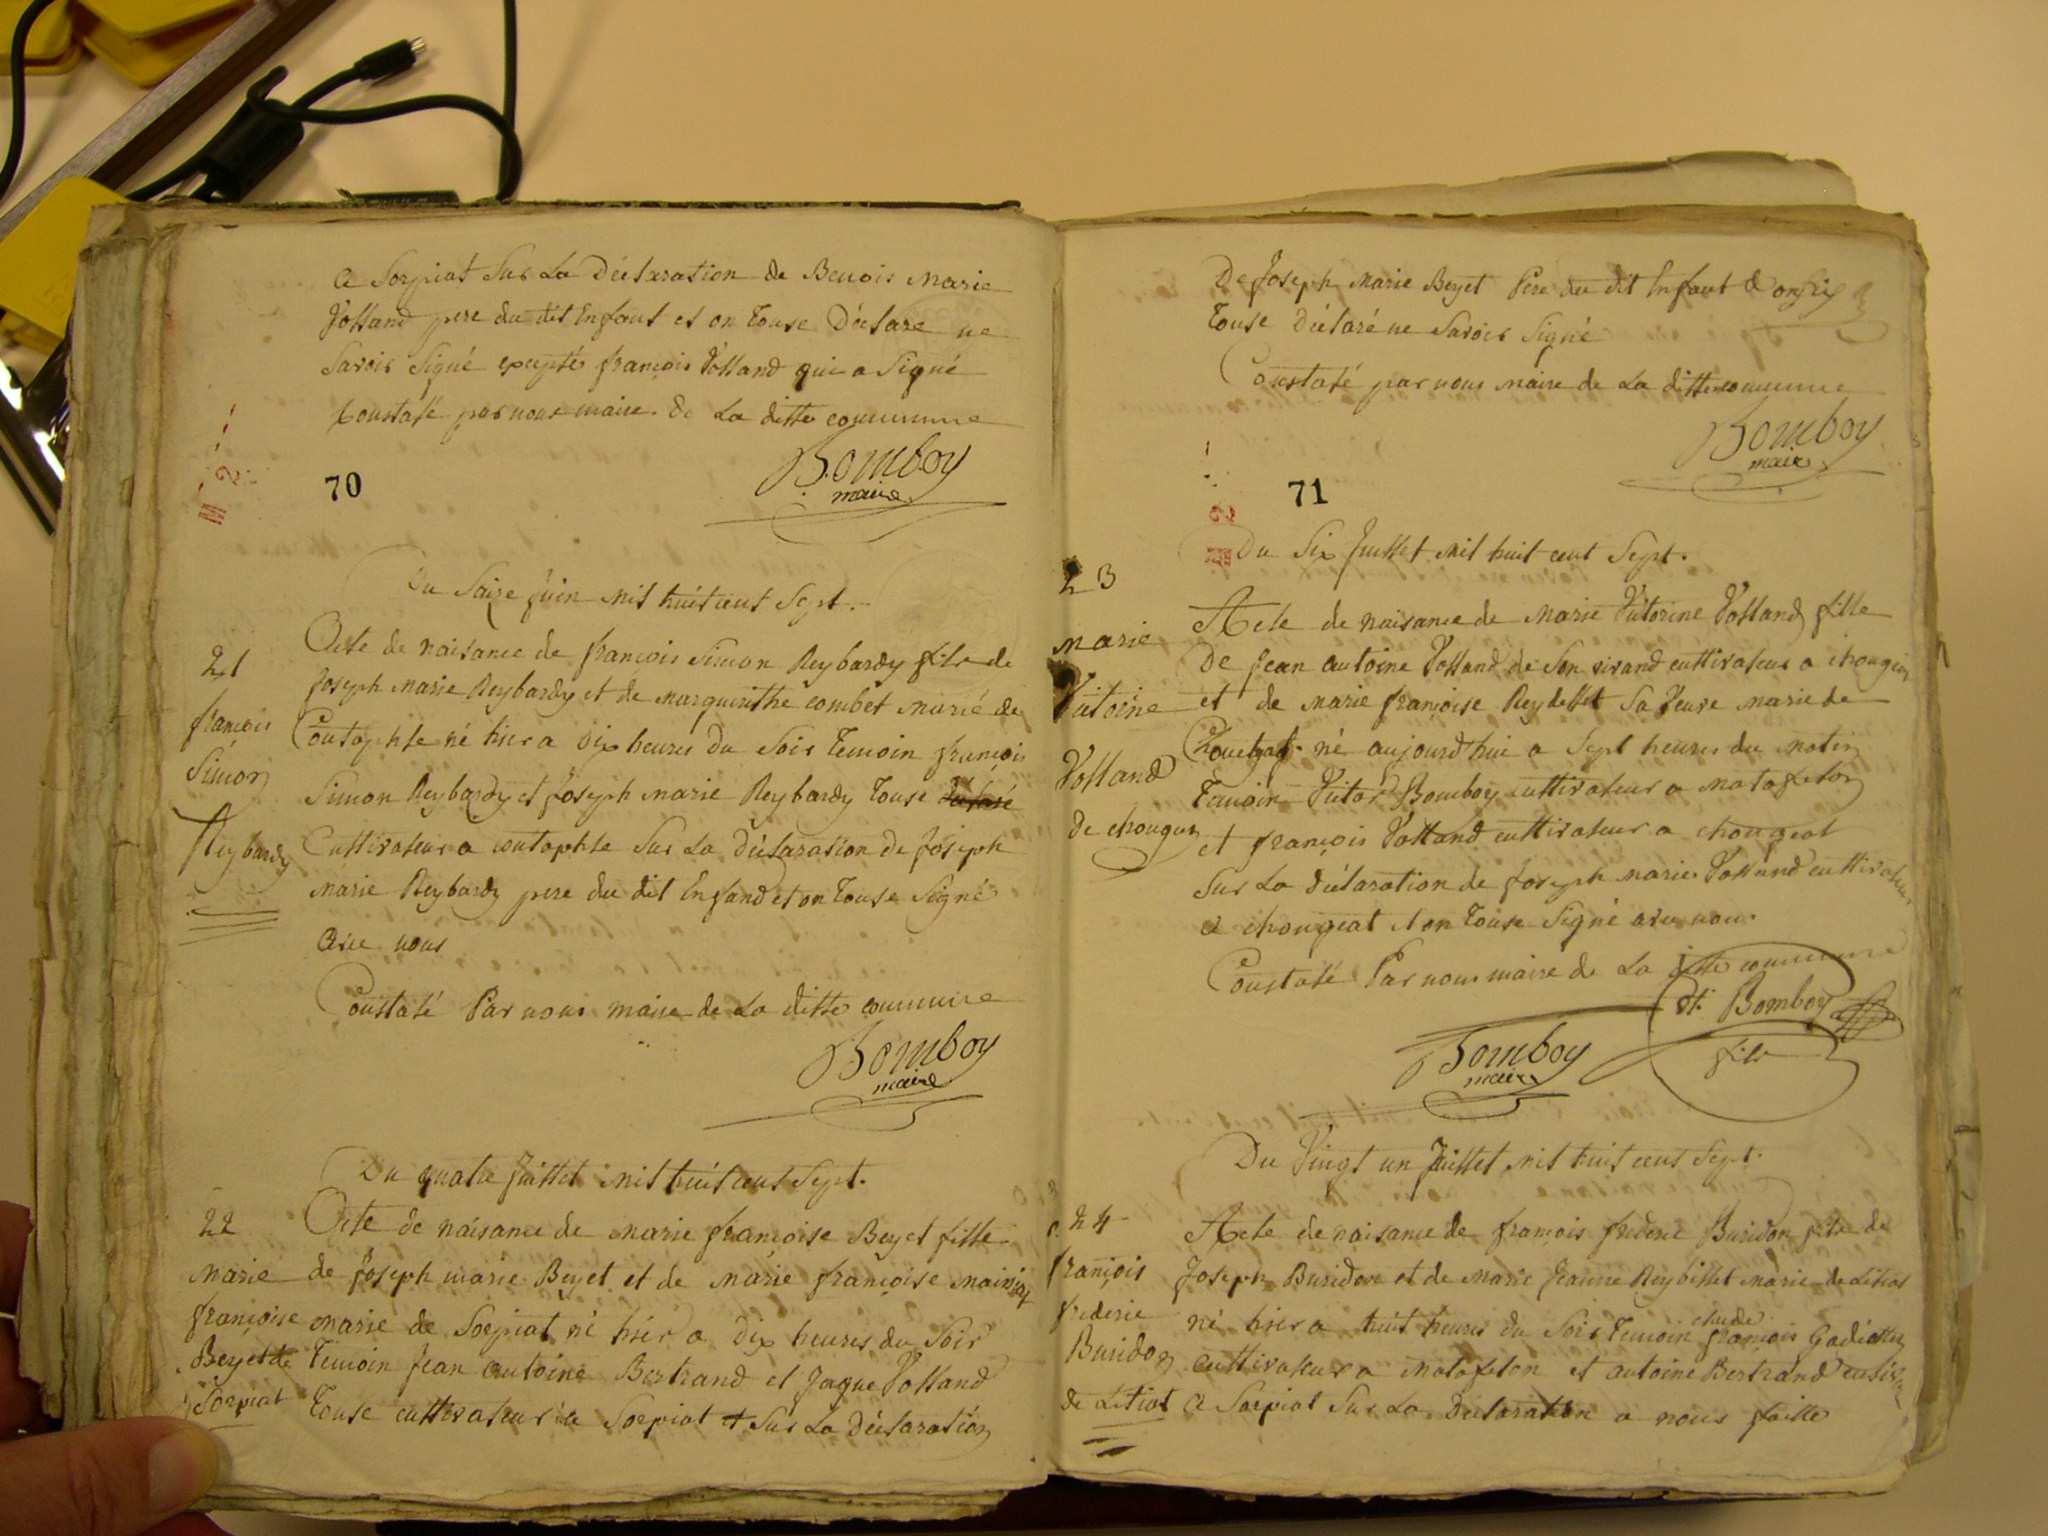 a Sorpiat Sur La Déclaration de Benois Marie
Volland pere du dit Enfant et on Touse Déclare ne
Savoir Signé excepté françois Volland qui a Signé
Constaté par nous maire de La ditte commune
Bomboy
maire
70
Du Saize juin mil huit cent Sept.
21
françois
Simon
Reybardy
Acte de naisance de françois Simon Reybardy fils de
Joseph Marie Reybardy et de marguerithe combet marié de
Coutophle né hier a dix heures du Soir Temoin françois
Simon Reybardy et Joseph marie Reybardy Touse
Cultivateur a coutophle Sur La Déclaration de Joseph
Marie Reybardy pere du dit Enfand et on Touse Signé
avec nous
Constaté Par nous maire de La ditte commune
Bomboy
maire
Du quatre Juillet mil huit cent Sept.
22
Marie
françoise
Beyet de
Sorpiat
Acte de naisance de marie françoise Beyet fille
de Joseph marie Beyet et de marie françoise
marié de Sorpiat né hier a Dix heures du Soir
Temoin Jean antoine Bertrand et Jaque Volland
Touse cultivateur a Sorpiat et Sur La Déclaration
De Joseph Marie Beyet Pere du dit Enfant &
Touse Déclaré ne Savoir Signé
Constaté par nous maire de La ditte commune
Bomboy
maire
71
Du Six Juillet mil huit cent Sept.
23
Marie
Volland
de chougeat
Acte de naisance de Marie Victorine Volland fille
De Jean antoine Volland de Son vivand cultivateur a chougeat
et de marie françoise Reydellet Sa Veuve marie de
Chougeat né aujourd'hui a Sept heures du matin
Temoin Victor Bomboy cultivateur a Matafelon
et françois Volland cultivateur a chougeat
Sur La déclaration de Joseph marie Volland cultivateur
a chougeat et on Touse Signé avec nous.
Constaté Par nous maire de La ditte commune
Bomboy
maire
Bomboy
fils
Du Vingt un Juillet mil huit cent Sept.
24
françois
frederic
Buridon
de Litiat
Acte de naisance de françois frederic Buridon fils de
Joseph Buridon et de Marie Jeanne Reybillet marié de Litiat
né hier a huit heures du Soir Temoin claude françois
cultivateur a Matafelon et antoine Bertrand
a Sorpiat Sur La Déclaration a nous faitte